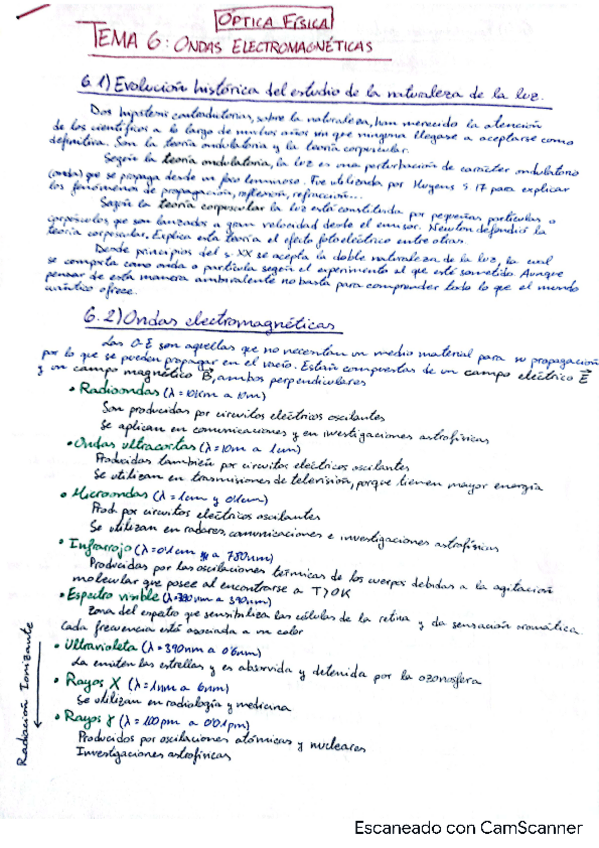 ÓPTICA FÍSICA
TEMA 6: ONDAS ELECTROMAGNÉTICAS
6.1) Evolución histórica del estudio de la naturaleza de la luz.
Dos hipótesis contradictorias, sobre la naturaleza, han merecido la atención
de los científicos a lo largo de muchos años sin que ninguna llegase a aceptarse como
definitiva. Son la teoría ondulatoria y la teoría corpuscular.
Según la teoría ondulatoria, la luz es una perturbación de carácter ondulatorio
(onda) que se propaga desde un foco luminoso. Fue utilizada por Huygens s 17 para explicar
los fenómenos de propagación, reflexión, refracción...
Según la teoría corpuscular la luz está constituida por pequeñas partículas o
corpúsculos que son lanzados a gran velocidad desde el emisor. Newton defendió la
teoría corpuscular. Explica esta teoría el efecto fotoeléctrico entre otros.
Desde principios del s. XX se acepta la doble naturaleza de la luz, la cual
se comporta como onda o partícula según el experimento al que está sometido. Aunque
pensar de esta manera ambivalente no basta para comprender todo lo que el mundo
cuántico ofrece.
6.2) Ondas electromagnéticas
Las O.E son aquellas que no necesitan un medio material para su propagación
por lo que se pueden propagar en el vacío. Están compuestas de un campo eléctrico E
y un campo magnético B, ambos perpendiculares
• Radioondas (λ = 10km a 10m)
Son producidas por circuitos eléctricos oscilantes
Se aplican en comunicaciones y en investigaciones astrofísicas
• Ondas ultracortas (λ = 10m a 1cm)
Producidas también por circuitos eléctricos oscilantes
Se utilizan en transmisiones de televisión, porque tienen mayor energía
• Microondas (λ = 1cm y 0'1cm)
Prod por circuitos eléctricos oscilantes
Se utilizan en radares, comunicaciones e investigaciones astrofísicas
• Infrarrojo (λ = 0'1cm a 780nm)
Producidas por las oscilaciones térmicas de los cuerpos debidas a la agitación
molecular que posee al encontrarse a T>0K
• Espectro visible (λ = 780nm a 390nm)
Zona del espectro que sensibiliza las células de la retina y da sensación cromática.
Cada frecuencia está asociada a un color
• Ultravioleta (λ = 390nm a 0'6nm)
La emiten las estrellas y es absorvida y detenida por la ozonosfera
• Rayos X (λ = 1nm a 6nm)
Se utilizan en radiología y medicina
• Rayos γ (λ = 100pm a 0'01pm)
Producidos por oscilaciones atómicas y nucleares
Investigaciones astrofísicas
Radiación Ionizante
Escaneado con CamScanner